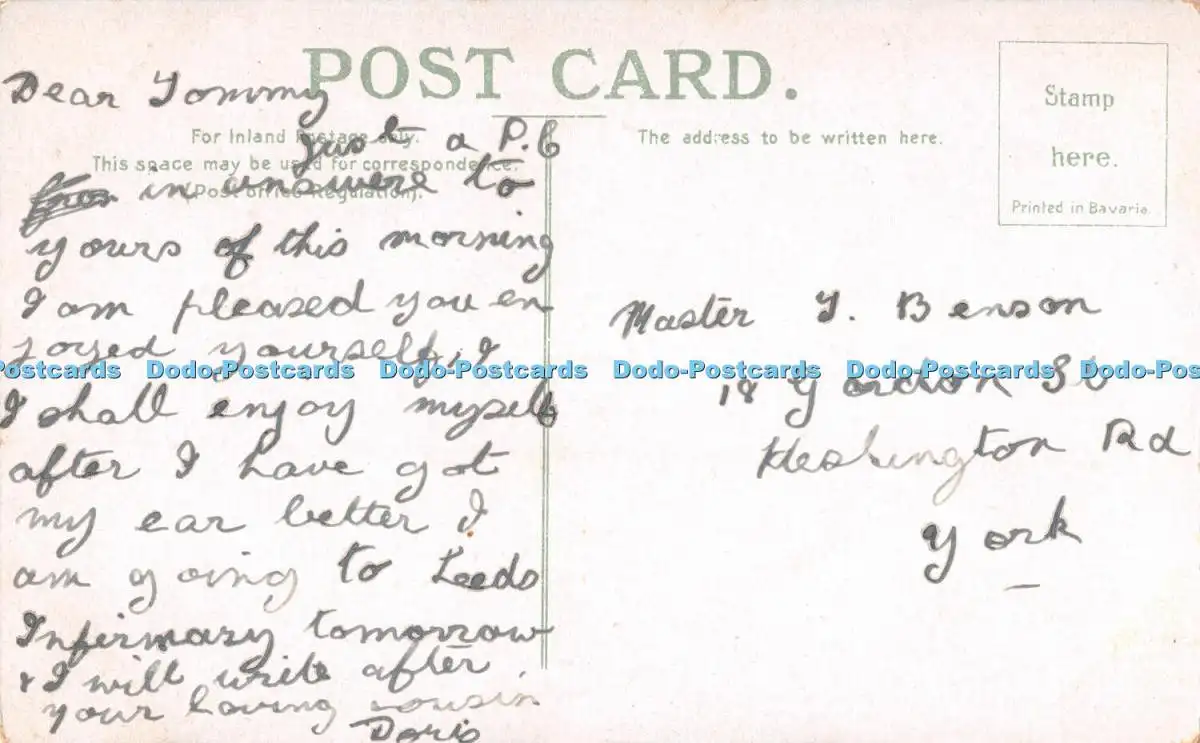 POST CARD.
Dear Tommy
For Inland Postage only.
Just a P.C
This space may be used for correspondence.
in answere to
(Post office Regulation).
yours of this morning
I am pleased you en
joyed yourself, I
I shall enjoy myself
after I have got
my ear better I
am going to Leeds
Infirmary tomorrow
& I will write after
your loving cousin
Doris
The address to be written here.
Stamp
here.
Printed in Bavaria.
Master T. Benson
18 Gordon St
Heslington Rd
York
Dodo-Postcards Dodo-Postcards Dodo-Postcards Dodo-Postcards Dodo-Postcards Dodo-Pos